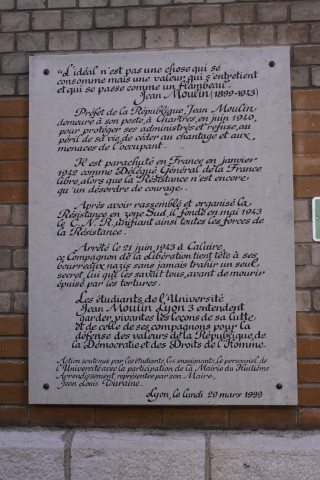 "L'idéal n'est pas une chose qui se
consomme mais une valeur qui s'entretient
et qui se passe comme un flambeau".
Jean Moulin (1899-1943)
Préfet de la République, Jean Moulin
demeure à son poste, à Chartres, en juin 1940,
pour protéger ses administrés et refuse, au
péril de sa vie, de céder au chantage et aux
menaces de l'occupant.
Il est parachuté en France en janvier
1942 comme Délégué Général de la France
Libre, alors que la Résistance n'est encore
qu'un désordre de courage.
Après avoir rassemblé et organisé la
Résistance en zone Sud, il fonde en mai 1943
le C.N.R., unifiant ainsi toutes les forces de
la Résistance.
Arrêté le 21 juin 1943 à Caluire,
ce Compagnon de la Libération tient tête à ses
bourreaux nazis sans jamais trahir un seul
secret, lui qui les savait tous, avant de mourir
épuisé par les tortures.
Les étudiants de l'Université
Jean Moulin Lyon 3 entendent
garder vivantes les leçons de sa lutte
et de celle de ses compagnons pour la
défense des valeurs de la République, de
la Démocratie et des Droits de l'Homme.
Action soutenue par les étudiants, les enseignants, le personnel de
l'Université avec la participation de la Mairie du Huitième
Arrondissement, représentée par son Maire,
Jean Louis Touraine.
Lyon, le lundi 29 mars 1999